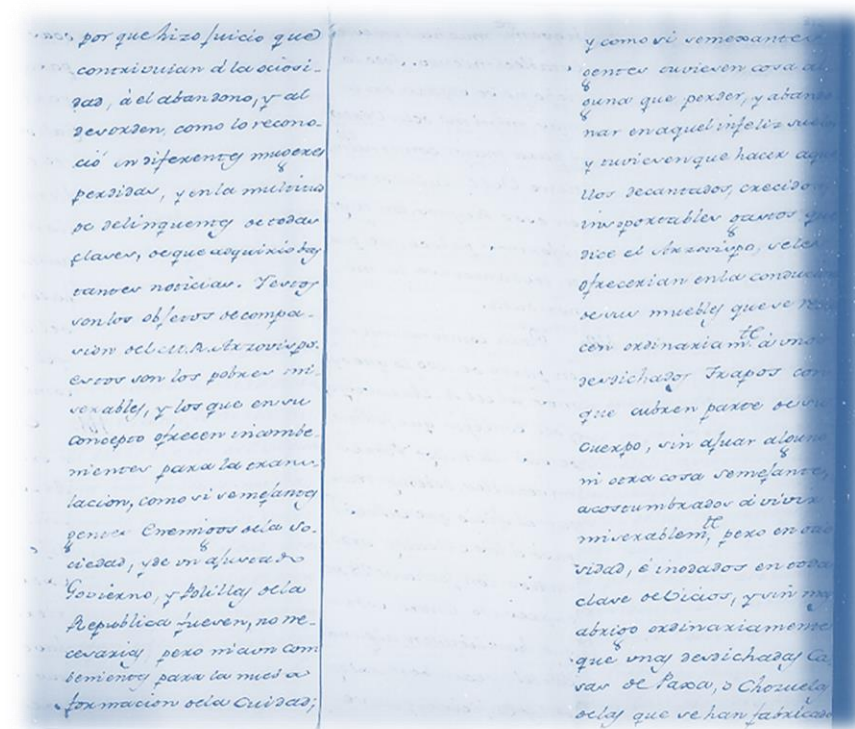 por que hizo juicio que
contrivuian á la ociosi-
dad, á el abandono, y al
desorden, como lo recono-
ció en diferentes mugeres
perdidas, y en la multitud
de delinquentes de todas
clases, de que adquirió bas
tantes noticias. Y estos
son los objetos de compa-
sion del M.R. Arzovispo.
estos son los pobres mi-
serables, y los que en su
concepto ofrecen incombe-
nientes para la trans-
lacion, como si semejantes
gentes Enemigos de la So-
ciedad, y de un ajustado
Govierno, y Polillas de la
Republica fuesen, no ne-
cesarias, pero ni aun com
benientes para la nueba
formacion de la Cuidad;
y como si semexantes
gentes tuviesen cosa al
guna que perder, y abando
nar en aquel infeliz suelo
y tuviesen que hacer aque
llos decantados, crecidos,
insoportables gastos que
dice el Arzovispo, se les
ofrecerian en la conducion
de sus muebles que se
cen ordinariam.te á unos
desdichados Trapos con
que cubren parte de su
Cuerpo, sin ajuar alguno
ni otra cosa semejante,
acostumbrados á vivir
miserablem.te, pero en ocio
sidad, é inodados en toda
clase de Vicios, y sin mas
abrigo ordinariamente
que unas desdichadas Ca
sas de Paxa, o Chozuelas
de las que se han fabricado